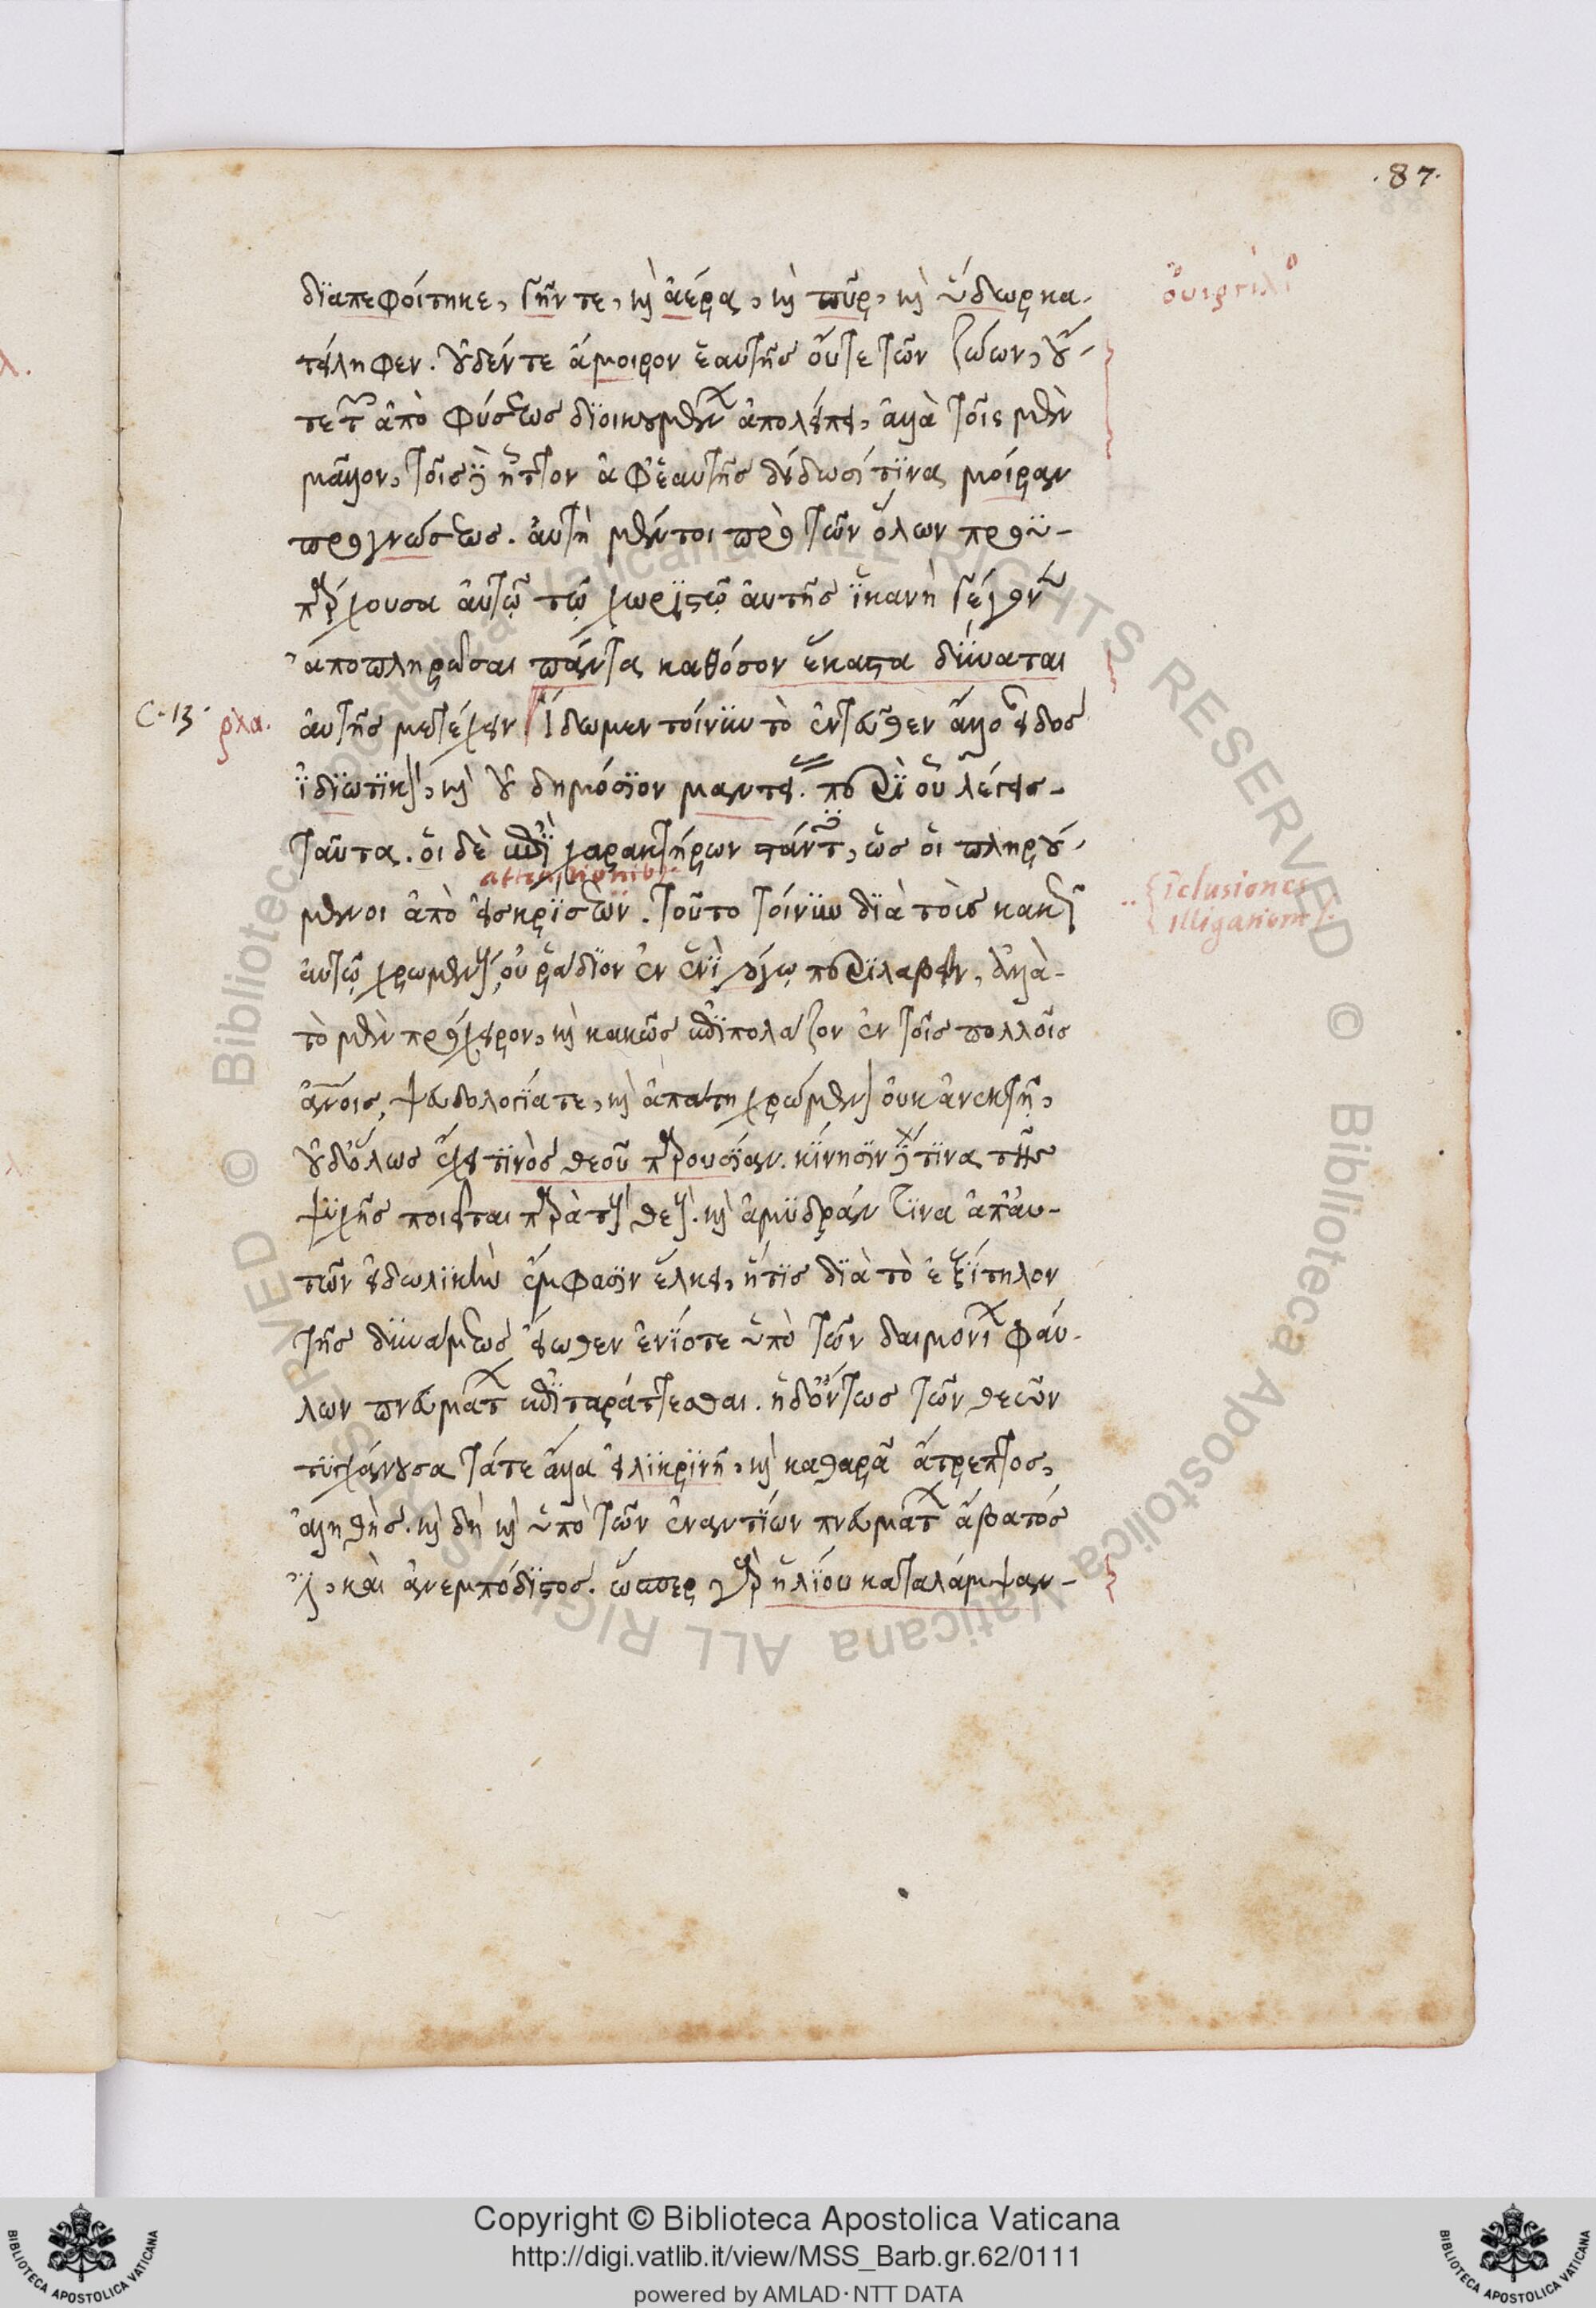 .87.
διαπεφοίτηκε, γῆν τε, καὶ ἀέρα, καὶ πῦρ, καὶ ὕδωρ κα-
τείληφεν. οὐδέν τε ἄμοιρον ἑαυτῆς οὔτε τῶν ζώων, οὔ-
τε τῶν ἀπὸ φύσεως διοικουμένων ἀπολείπει, ἀλλὰ τοῖς μὲν
μᾶλλον, τοῖς δὲ ἧττον ἀφ' ἑαυτῆς δίδωσί τινα μοῖραν
προγνώσεως. αὐτὴ μέντοι πρὸ τῶν ὅλων προϋ-
πάρχουσα αὐτῷ τῷ χωριστῷ αὐτῆς ἱκανὴ γέγονεν
ἀποπληρῶσαι πάντα καθόσον ἕκαστα δύναται
C.13. ρλα. αὐτῆς μετέχειν. Ἴδωμεν τοίνυν τὸ ἐντεῦθεν ἄλλο εἶδος
ἰδιωτικὸν, καὶ οὐ δημόσιον μαντείας. περὶ οὗ λέγεις
ταῦτα. οἱ δὲ ἐπὶ χαρακτήρων στάντες, ὡς οἱ πληρού-
μενοι ἀπὸ εἰσκρίσεων. τοῦτο τοίνυν διὰ τοὺς κακῶς
αὐτῷ χρωμένους, οὐ ῥάδιον ἐν ἑνὶ λόγῳ περιλαβεῖν, ἀλλὰ
τὸ μὲν πρόχειρον, καὶ κακῶς ἐπιπολάζον ἐν τοῖς πολλοῖς
ἀνοις, ψευδολογίᾳ τε, καὶ ἀπάτῃ χρώμενον οὐκ ἀνεκτῇ,
οὐδ' ὅλως ἔχει τινὸς θεοῦ παρουσίαν. κίνησιν δέ τινα τῆς
ψυχῆς ποιεῖται παρὰ τοὺς θεούς. καὶ ἀμυδράν τινα ἀπ' αὐ-
τῶν εἰδωλικὴν ἔμφασιν ἕλκει, ἥτις διὰ τὸ ἐξίτηλον
τῆς δυνάμεως εἴωθεν ἐνίοτε ὑπὸ τῶν δαιμονίων φαύ-
λων πνευμάτων ἐπιταράττεσθαι. ἡ δ' ὄντως τῶν θεῶν
τυγχάνουσα τά τε ἄλλα εἰλικρινὴ, καὶ καθαρᾶ ἄτρεπτος,
ἀληθής. καὶ δὴ καὶ ὑπὸ τῶν ἐναντίων πνευμάτων ἄβατός
ἐστι, καὶ ἀνεμπόδιστος. ὥσπερ γὰρ ἡλίου καταλάμψαν-
inclusiones
illiganem
Copyright © Biblioteca Apostolica Vaticana
http://digi.vatlib.it/view/MSS_Barb.gr.62/0111
powered by AMLAD·NTT DATA
BIBLIOTECA APOSTOLICA VATICANA
BIBLIOTECA APOSTOLICA VATICANA